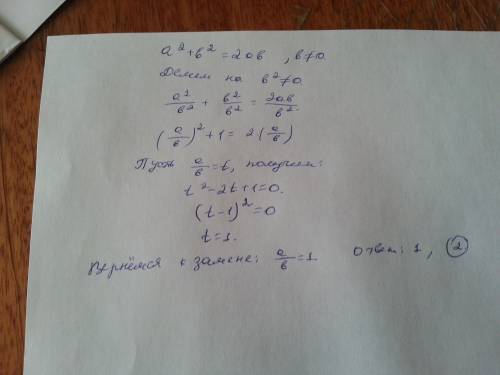 a² + b² = 2ab , b≠0
Делим на b²≠0
a²/b² + b²/b² = 2ab/b².
(a/b)² + 1 = 2(a/b)
Пусть a/b = t, получим:
t² - 2t + 1 = 0.
(t - 1)² = 0
t = 1.
Вернёмся к замене: a/b = 1. Ответ: 1, ②